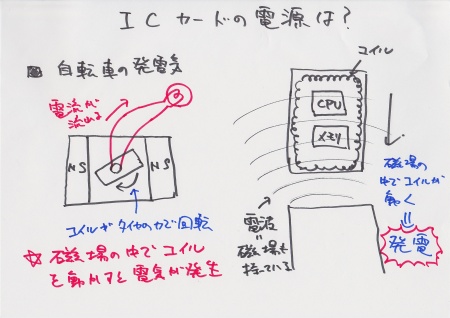 ICカードの電源は?
自転車の発電気
電流が
流れる
N S
N S
コイルがタイヤの力で回転
☆ 磁場の中でコイル
を動かすと電気が発生
コイル
CPU
メモリ
電波
=
磁場も
持っている
磁場の
中でコイルが
動く
発電